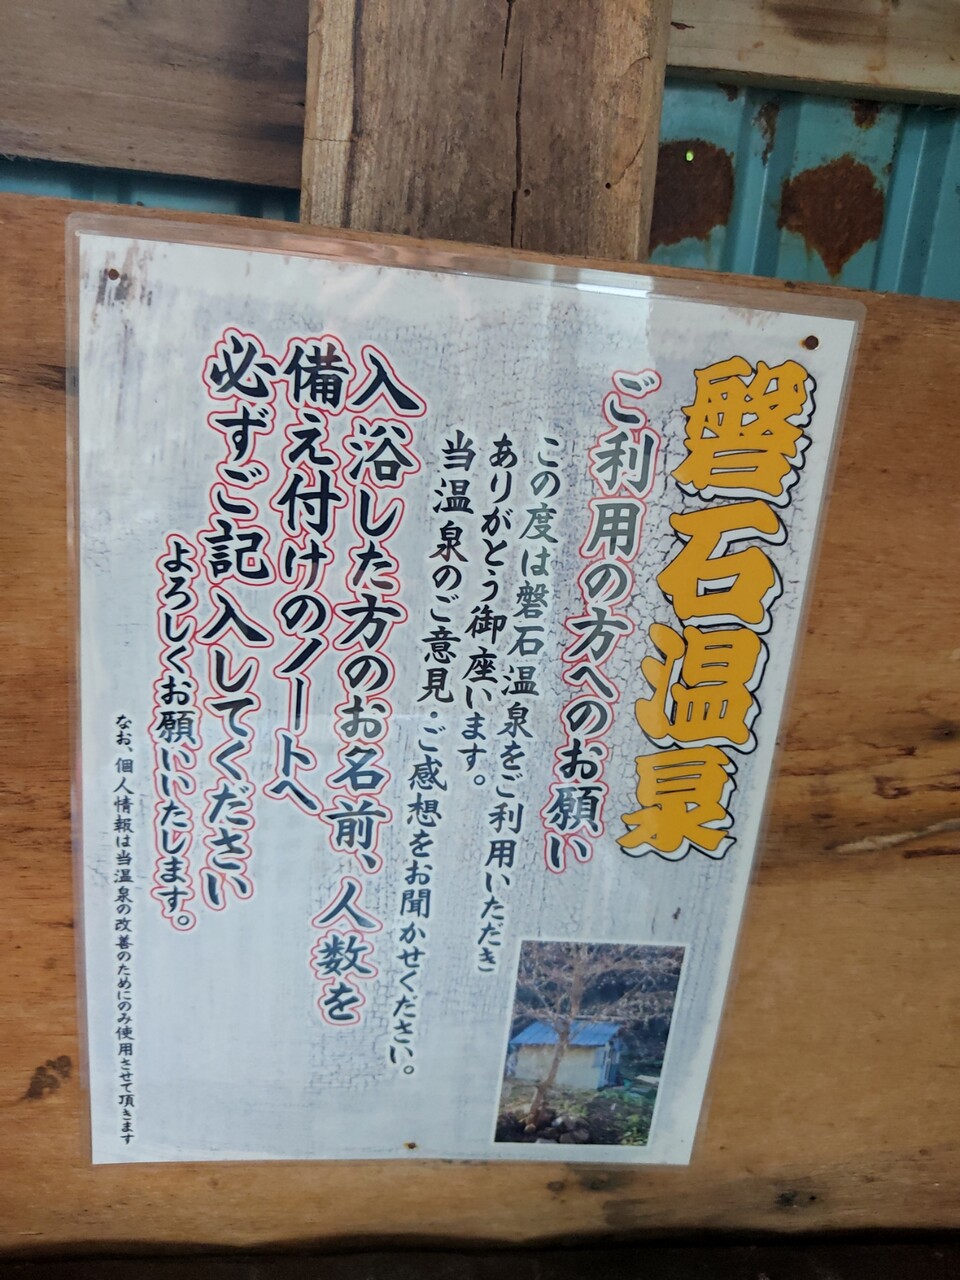 磐石温泉
ご利用の方へのお願い
この度は磐石温泉をご利用いただき
ありがとう御座います。
当温泉のご意見・ご感想をお聞かせください。
入浴した方のお名前、人数を
備え付けのノートへ
必ずご記入してください
よろしくお願いいたします。
なお、個人情報は当温泉の改善のためにのみ使用させて頂きます